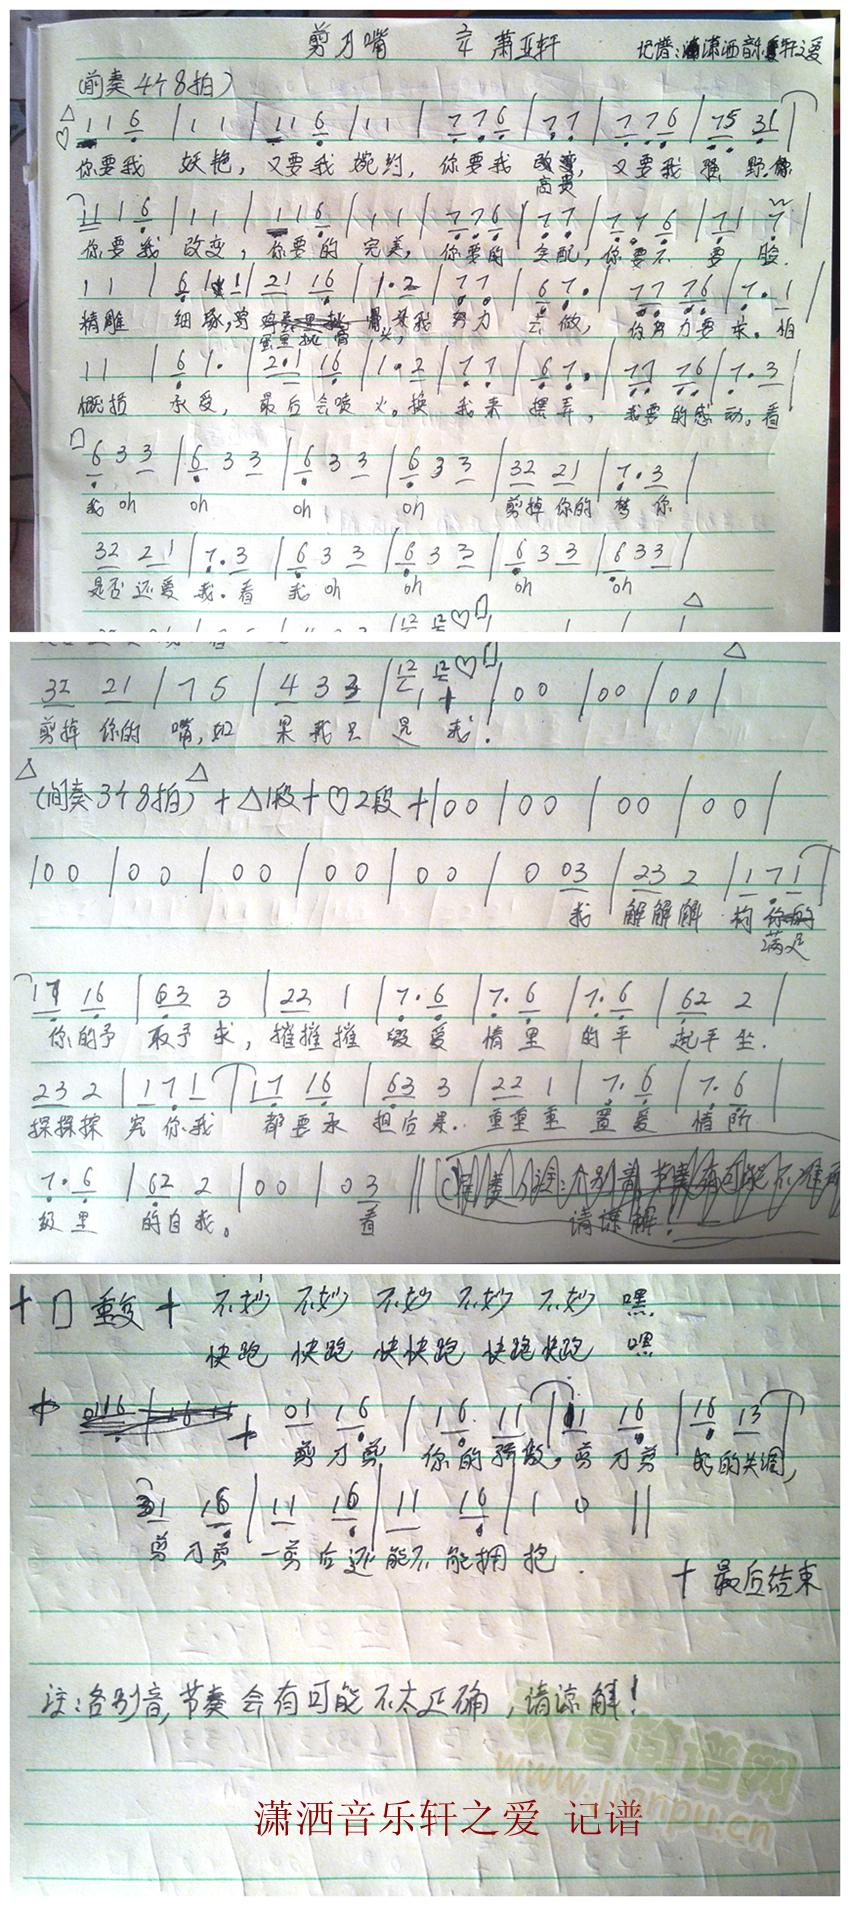 剪刀嘴 2/4 萧亚轩 记谱:潇洒音乐轩之爱
(前奏4个8拍)
1 1 6 | 1 1 | 1 1 6 | 1 1 | 7 7 6 | 7 7 | 7 7 6 | 75 31 |
你要我 妖艳, 又要我 婉约, 你要我 高贵, 又要我 狂野.你
11 1 6 | 1 1 | 1 1 6 | 1 1 | 7 7 6 | 7 7 | 7 7 6 | 7 1 7 |
你要我 改变, 你要的 完美, 你要的 绝配, 你要不 要 脸.
1 1 | 6 1 1 | 21 16 | 1·2 | 7 7 | 6 7· | 77 76 | 7· 1 |
精雕 细琢, 蛋里挑骨头, 我 努力 去做, 你努力要求。怕
1 1 | 6 1· | 2·1 16 | 1·2 | 7 7 | 6 7· | 77 76 | 7·3 |
概括 承受, 最后会喷火。换 我来 摆弄, 我要的感动。看
6 3 3 | 6 3 3 | 6 3 3 | 6 3 3 | 32 21 | 7·3 |
我 oh oh oh oh 剪掉你的 嘴 你
32 21 | 7·3 | 6 3 3 | 6 3 3 | 6 3 3 | 6 3 3 |
是否还爱我.看 我 oh oh oh oh
32 21 | 7 5 | 4 3 3 | 12 12 | 00 | 00 | 00 |
剪掉 你的 嘴,如 果我只 是 我.
(间奏3个8拍) + △1段 + ♡2段 + | 00 | 00 | 00 | 00 |
| 00 | 00 | 00 | 00 | 00 | 0 03 | 23 2 | 1 7 1 |
我 解解解 构 你的
满足
17 16 | 63 3 | 22 1 | 7·6 | 7·6 | 7·6 | 62 2 |
你的予 取予求, 摧摧摧 毁爱 情里 的平 起平坐.
23 2 | 1 7 1 | 17 16 | 63 3 | 22 1 | 7·6 | 7·6 |
探探探 究你我 都要承 担后果.. 重重重 置爱 情阶
7·6 | 62 2 | 00 | 0 3 ||
级里 的自我。 看
请谅解!
+ 重复 + 不妙 不妙 不妙 不妙 不妙 嘿
快跑 快跑 快快跑 快跑快跑 嘿
+ 01 16 | 16 11 | 11 16 | 16 13 |
剪刀剪 你的骄傲, 剪刀剪 的关调,
31 16 | 11 16 | 11 16 | 1 0 ||
剪刀剪 一剪后还能不能拥抱.
+ 最后结束
注:各别音,节奏会有可能不太正确,请谅解!
歌谱简谱网
www.jianpu.cn
潇洒音乐轩之爱 记谱